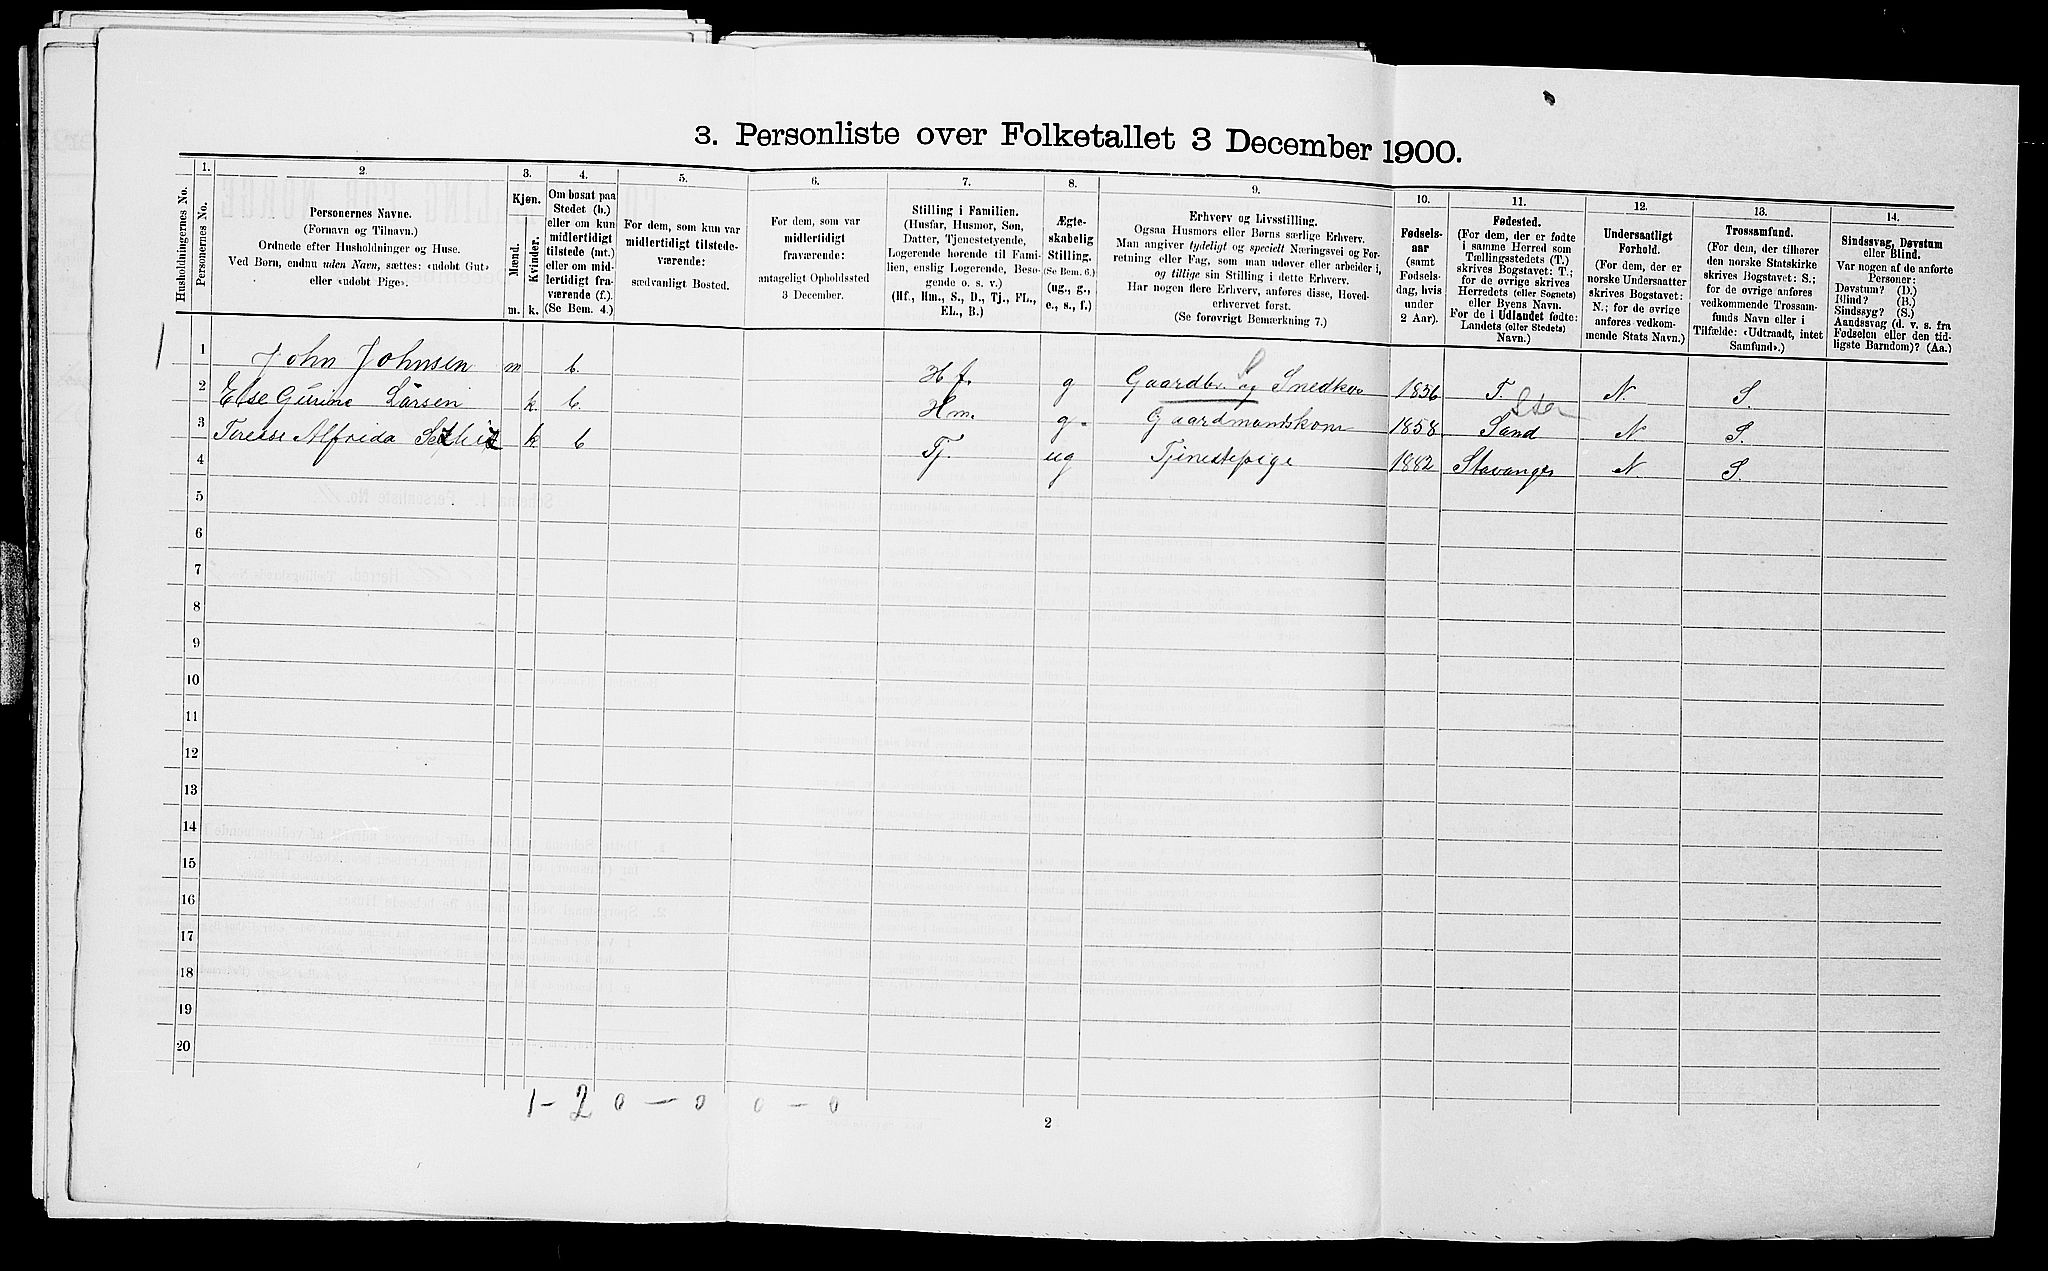 3. Personliste over Folketallet 3 December 1900.
Husholdningernes No.
1.
Personernes No.
2.
Personernes Navne.
(Fornavn og Tilnavn.)
Ordnede efter Husholdninger og Huse.
Ved Børn, endnu uden Navn, sættes: «udøbt Gut»
eller «udøbt Pige».
3.
Kjøn.
Mænd.
Kvinder.
m. k.
4.
Om bosat paa
Stedet (b.)
eller om kun
midlertidigt
tilstede (mt.)
eller om mid-
lertidigt fra-
værende (f.).
(Se Bem. 4.)
5.
For dem, som kun var
midlertidigt tilstede-
værende:
sædvanligt Bosted.
6.
For dem, som var
midlertidigt
fraværende:
antageligt Opholdssted
3 December.
7.
Stilling i Familien.
(Husfar, Husmor, Søn,
Datter, Tjenestetyende,
Logerende hørende til Fami-
lien, enslig Logerende, Besø-
gende o. s. v.)
(Hf., Hm., S., D., Tj., FL.,
EL., B.)
8.
Ægte-
skabelig
Stilling.
(Se Bem. 6.)
(ug., g.,
e., s., f.)
9.
Erhverv og Livsstilling.
Ogsaa Husmors eller Børns særlige Erhverv.
Man angiver tydeligt og specielt Næringsvei og For-
retning eller Fag, som man udøver eller arbeider i,
og tillige sin Stilling i dette Erhverv.
Har nogen flere Erhverv, anføres disse, Hoved-
erhvervet først.
(Se forøvrigt Bemærkning 7.)
10.
Fødsels-
aar
(samt
Fødsels-
dag, hvis
under
2 Aar).
11.
Fødested.
(For dem, der er fødte
i samme Herred som
Tællingsstedets (T.)
skrives Bogstavet: T.;
for de øvrige skrives
Herredets (eller Sognets)
eller Byens Navn.
For de i Udlandet fødte:
Landets (eller Stedets)
Navn.)
12.
Undersaatligt
Forhold.
(For dem, der er
norske Undersaatter
skrives Bogstavet:
N.; for de øvrige
anføres vedkom-
mende Stats Navn.)
13.
Trossamfund.
(For dem, der tilhører
den norske Statskirke
skrives Bogstavet: S.;
for de øvrige anføres
vedkommende Trossam-
funds Navn eller i
Tilfælde: «Udtraadt, intet
Samfund».)
14.
Sindssvag, Døvstum
eller Blind.
Var nogen af de anførte
Personer:
Døvstum? (D.)
Blind? (B.)
Sindssyg? (S.)
Aandssvag (d. v. s. fra
Fødselen eller den tid-
ligste Barndom)? (Aa.)
1 1 John Johnsen m b. Hf. g Gaardbr S og Snedker 1856 T. N. S.
2 Else Gurine Larsen k. b. Hm. g. Gaardmandskone 1858 Sand N S.
3 Terese Alfrida k b Tj. ug Tjenestepige 1882 Stavanger N. S.
4
5
6
7
8
9
10
11
12
13
14
15
16
17
18
19
20
1 - 2 0 - 0 0 - 0
2